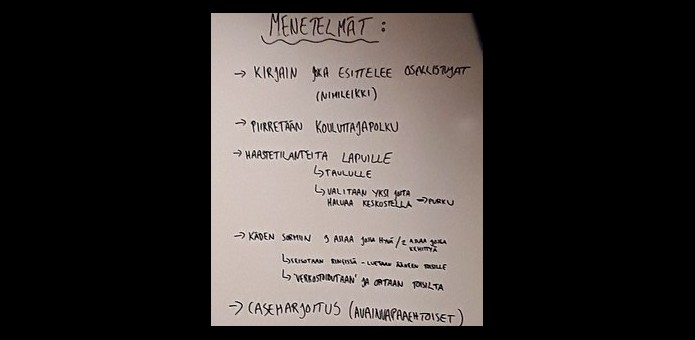 MENETELMÄT:
→ KIRJAIN JOKA ESITTELEE OSALLISTUJAT
(NIMILEIKKI)
→ PIIRRETÄÄN KOULUTTAJAPOLKU
→ HAASTETILANTEITA LAPUILLE
↳ TAULULLE
↳ VALITAAN YKSI JOTA
HALUAA KESKOSTELLA → PURKU
→ KÄDEN SORMIIN 3 ASIAA JOSSA HYVÄ / 2 ASIAA JOSSA
KEHITTYÄ
↳ SEISOTAAN RINGISSÄ - LUETAAN ÄÄNEEN TOISILLE
↳ "VERKOSTOIDUTAAN" JA OTETAAN TOISILTA
→ CASEHARJOITUS (AVAINVAPAAEHTOISET)